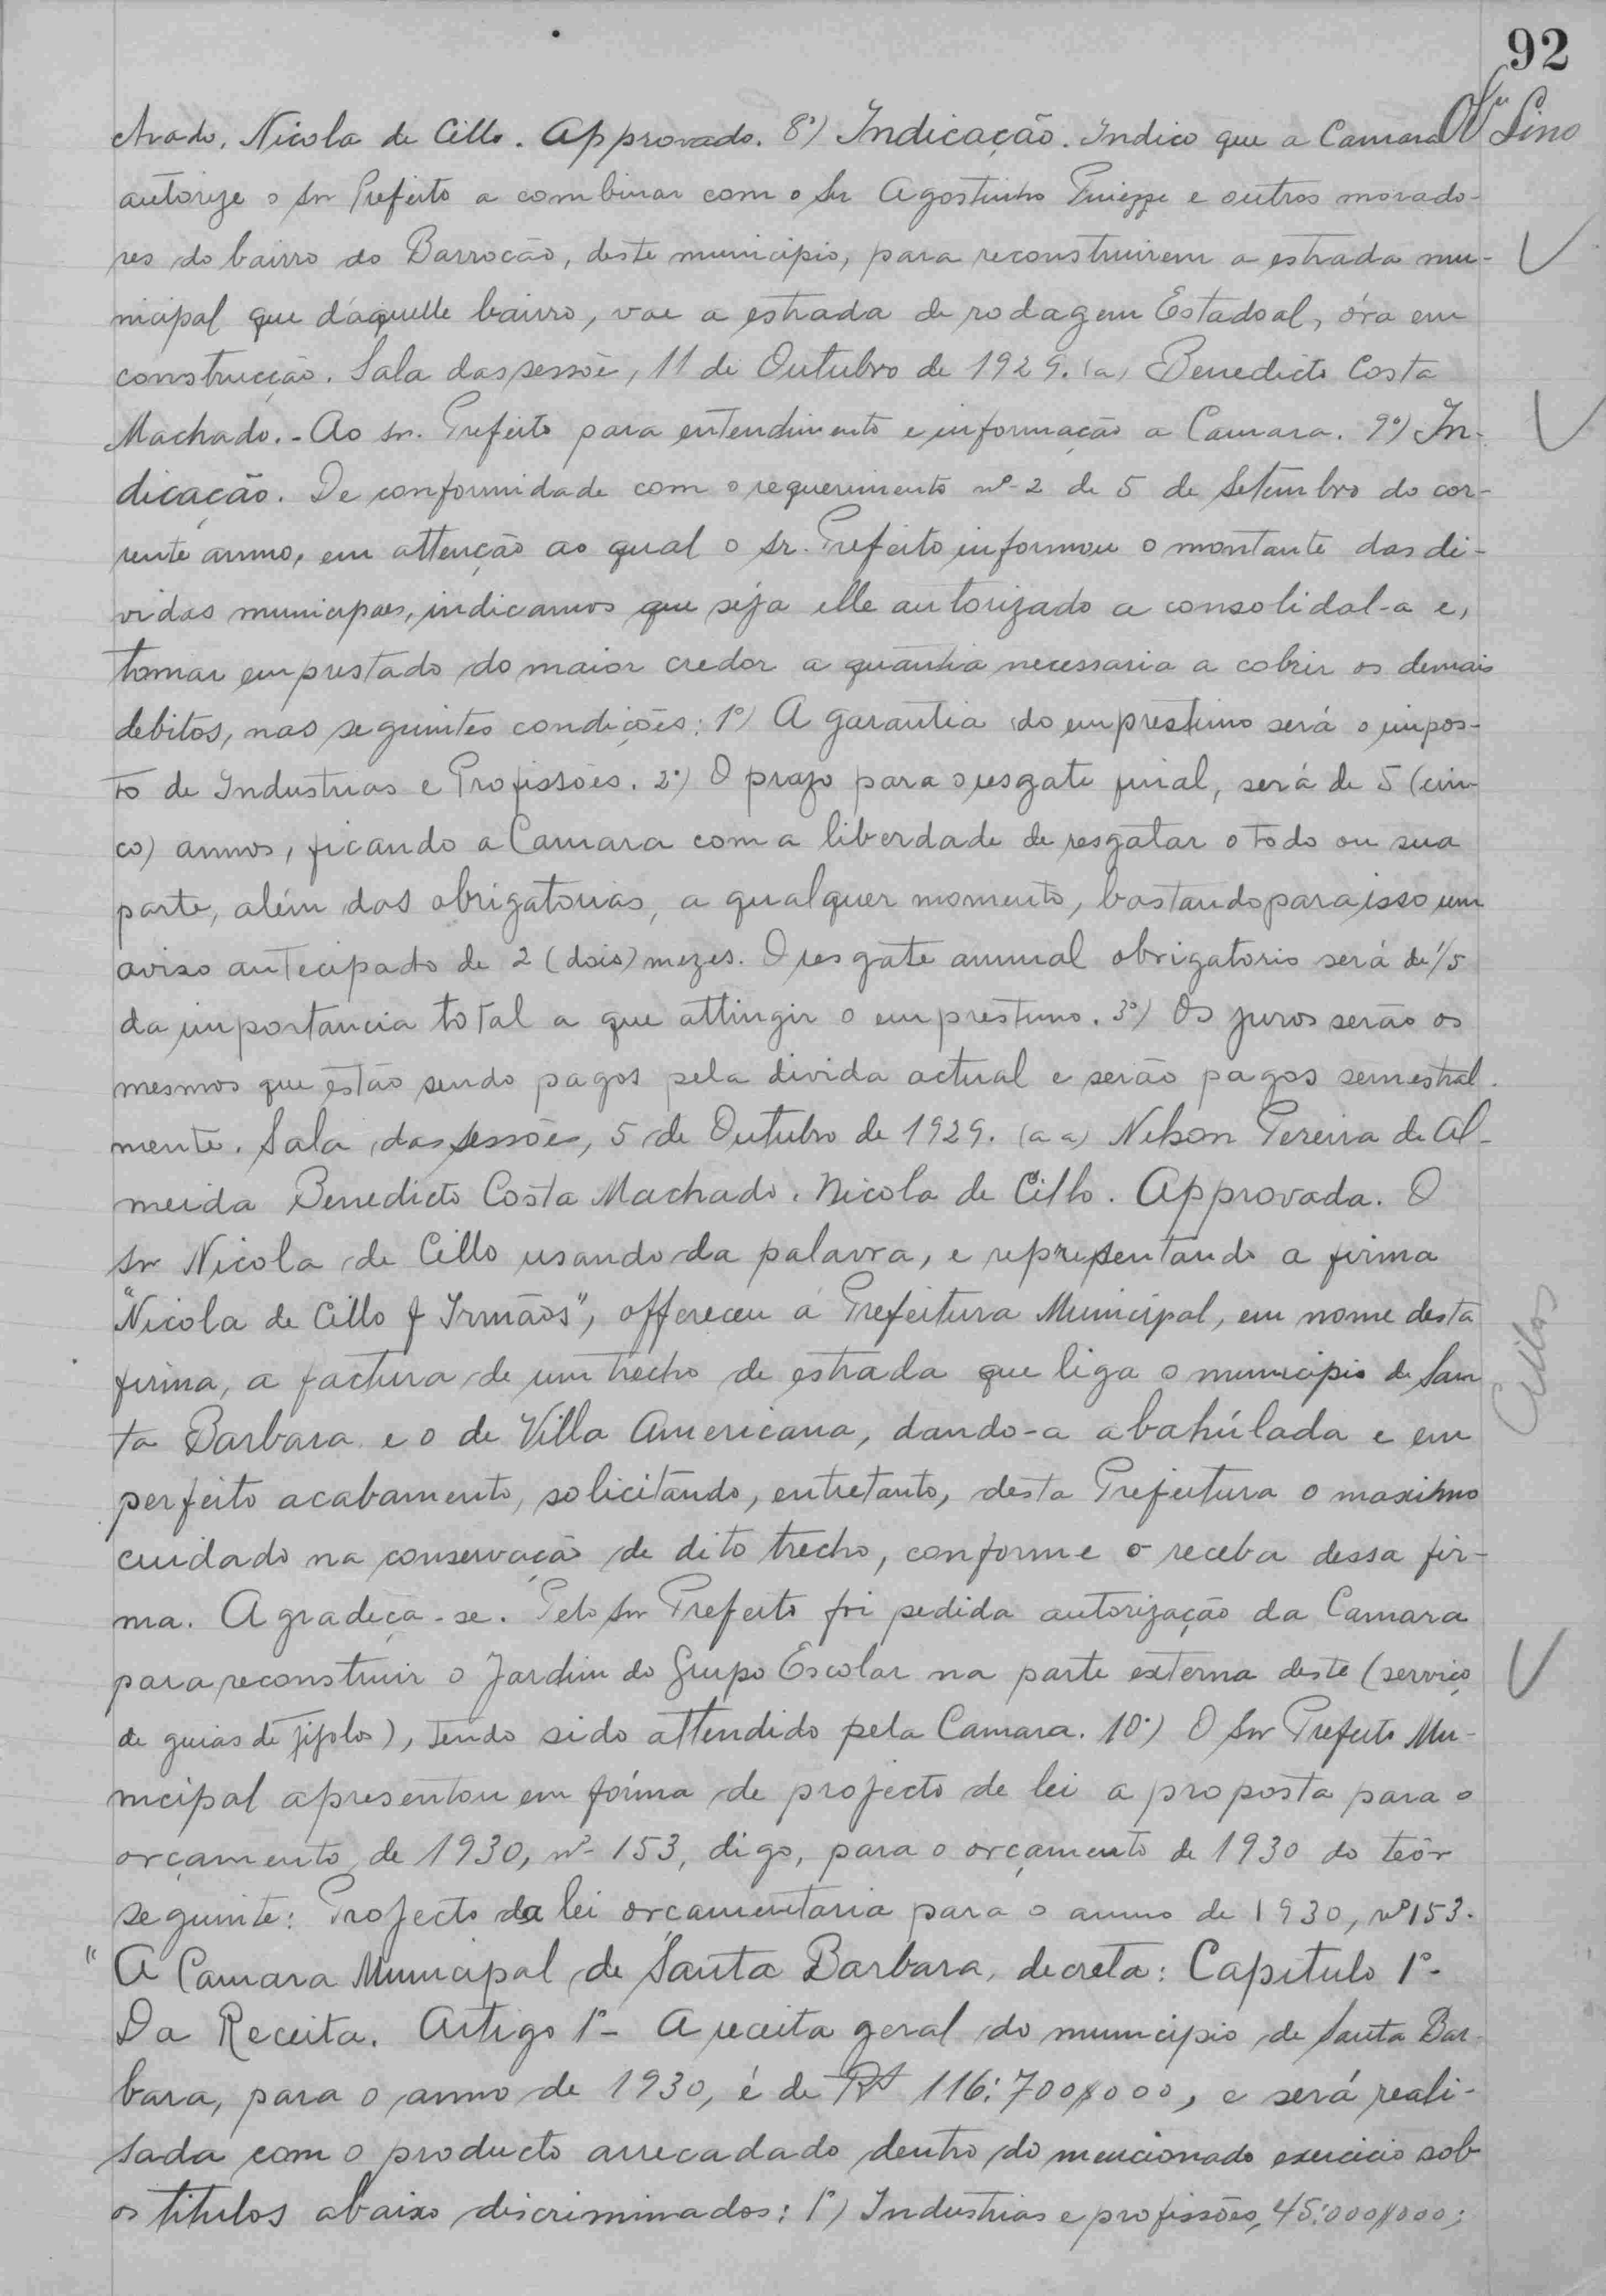 92
chado. Nicola de Cillo. Approvado. 8º) Indicação. Indico que a Camara
Lino
autorize o Snr Prefeito a combinar com o Snr Agostinho e outros morado-
res do bairro do Barrocão, deste municipio, para reconstruirem a estrada mu-
nicipal que dáquelle bairro, vae a estrada de rodagem Estadoal, óra em
construcção. Sala das sessõe, 11 de Outubro de 1929. (a) Benedicto Costa
Machado. - Ao sr. Prefeito para entendimento e informação a Camara. 9º) In-
dicação. De conformidade com o requerimento nº 2 de 5 de Setembro do cor-
rente anno, em attenção ao qual o sr. Prefeito informou o montante das di-
vidas municipaes, indicamos que seja elle autorizado a consolidal-a e,
tomar emprestado do maior credor a quantia necessaria a cobrir os demais
debitos, nas seguintes condições: 1º) A garantia do emprestimo será o impos-
to de Industrias e Profissões. 2º) O prazo para o resgate final, será de 5 (cin-
co) annos, ficando a Camara com a liberdade de resgatar o todo ou sua
parte, além das obrigatorias, a qualquer momento, bastando para isso um
aviso antecipado de 2 (dois) mezes. O resgate annual obrigatorio será de 1/5
da importancia total a que attingir o emprestimo. 3º) Os juros serão os
mesmos que estão sendo pagos pela divida actual e serão pagos semestral-
mente. Sala das sessões, 5 de Outubro de 1929. (a a) Nelson Pereira de Al-
meida Benedicto Costa Machado. Nicola de Cillo. Approvada. O
Snr Nicola de Cillo usando da palavra, e representando a firma
"Nicola de Cillo & Irmãos", offereceu á Prefeitura Municipal, em nome desta
firma, a factura de um trecho de estrada que liga o municipio de San
Cillos
ta Barbara e o de Villa Americana, dando-a abahúlada e em
perfeito acabamento, solicitando, entretanto, desta Prefeitura o maximo
cuidado na conservação de dito trecho, conforme o receba dessa fir-
ma. Agradeça-se. Pelo Snr Prefeito foi pedida autorização da Camara
para reconstruir o Jardim do Grupo Escolar na parte externa deste (serviço
de guias de tijolos), tendo sido attendido pela Camara. 10º) O Snr Prefeito Mu-
nicipal apresentou em fórma de projecto de lei a proposta para o
orçamento de 1930, nº 153, digo, para o orçamento de 1930 do teôr
seguinte: Projecto da lei orçamentaria para o anno de 1930, nº 153.
"A Camara Municipal de Santa Barbara, decreta: Capitulo 1º-
Da Receita. Artigo 1º- A receita geral do municipio de Santa Bar-
bara, para o anno de 1930, é de Rs 116:700$000, e será reali-
sada com o producto arrecadado dentro do mencionado exercicio sob
os titulos abaixo discriminados: 1º) Industrias e profissões, 45:000$000;